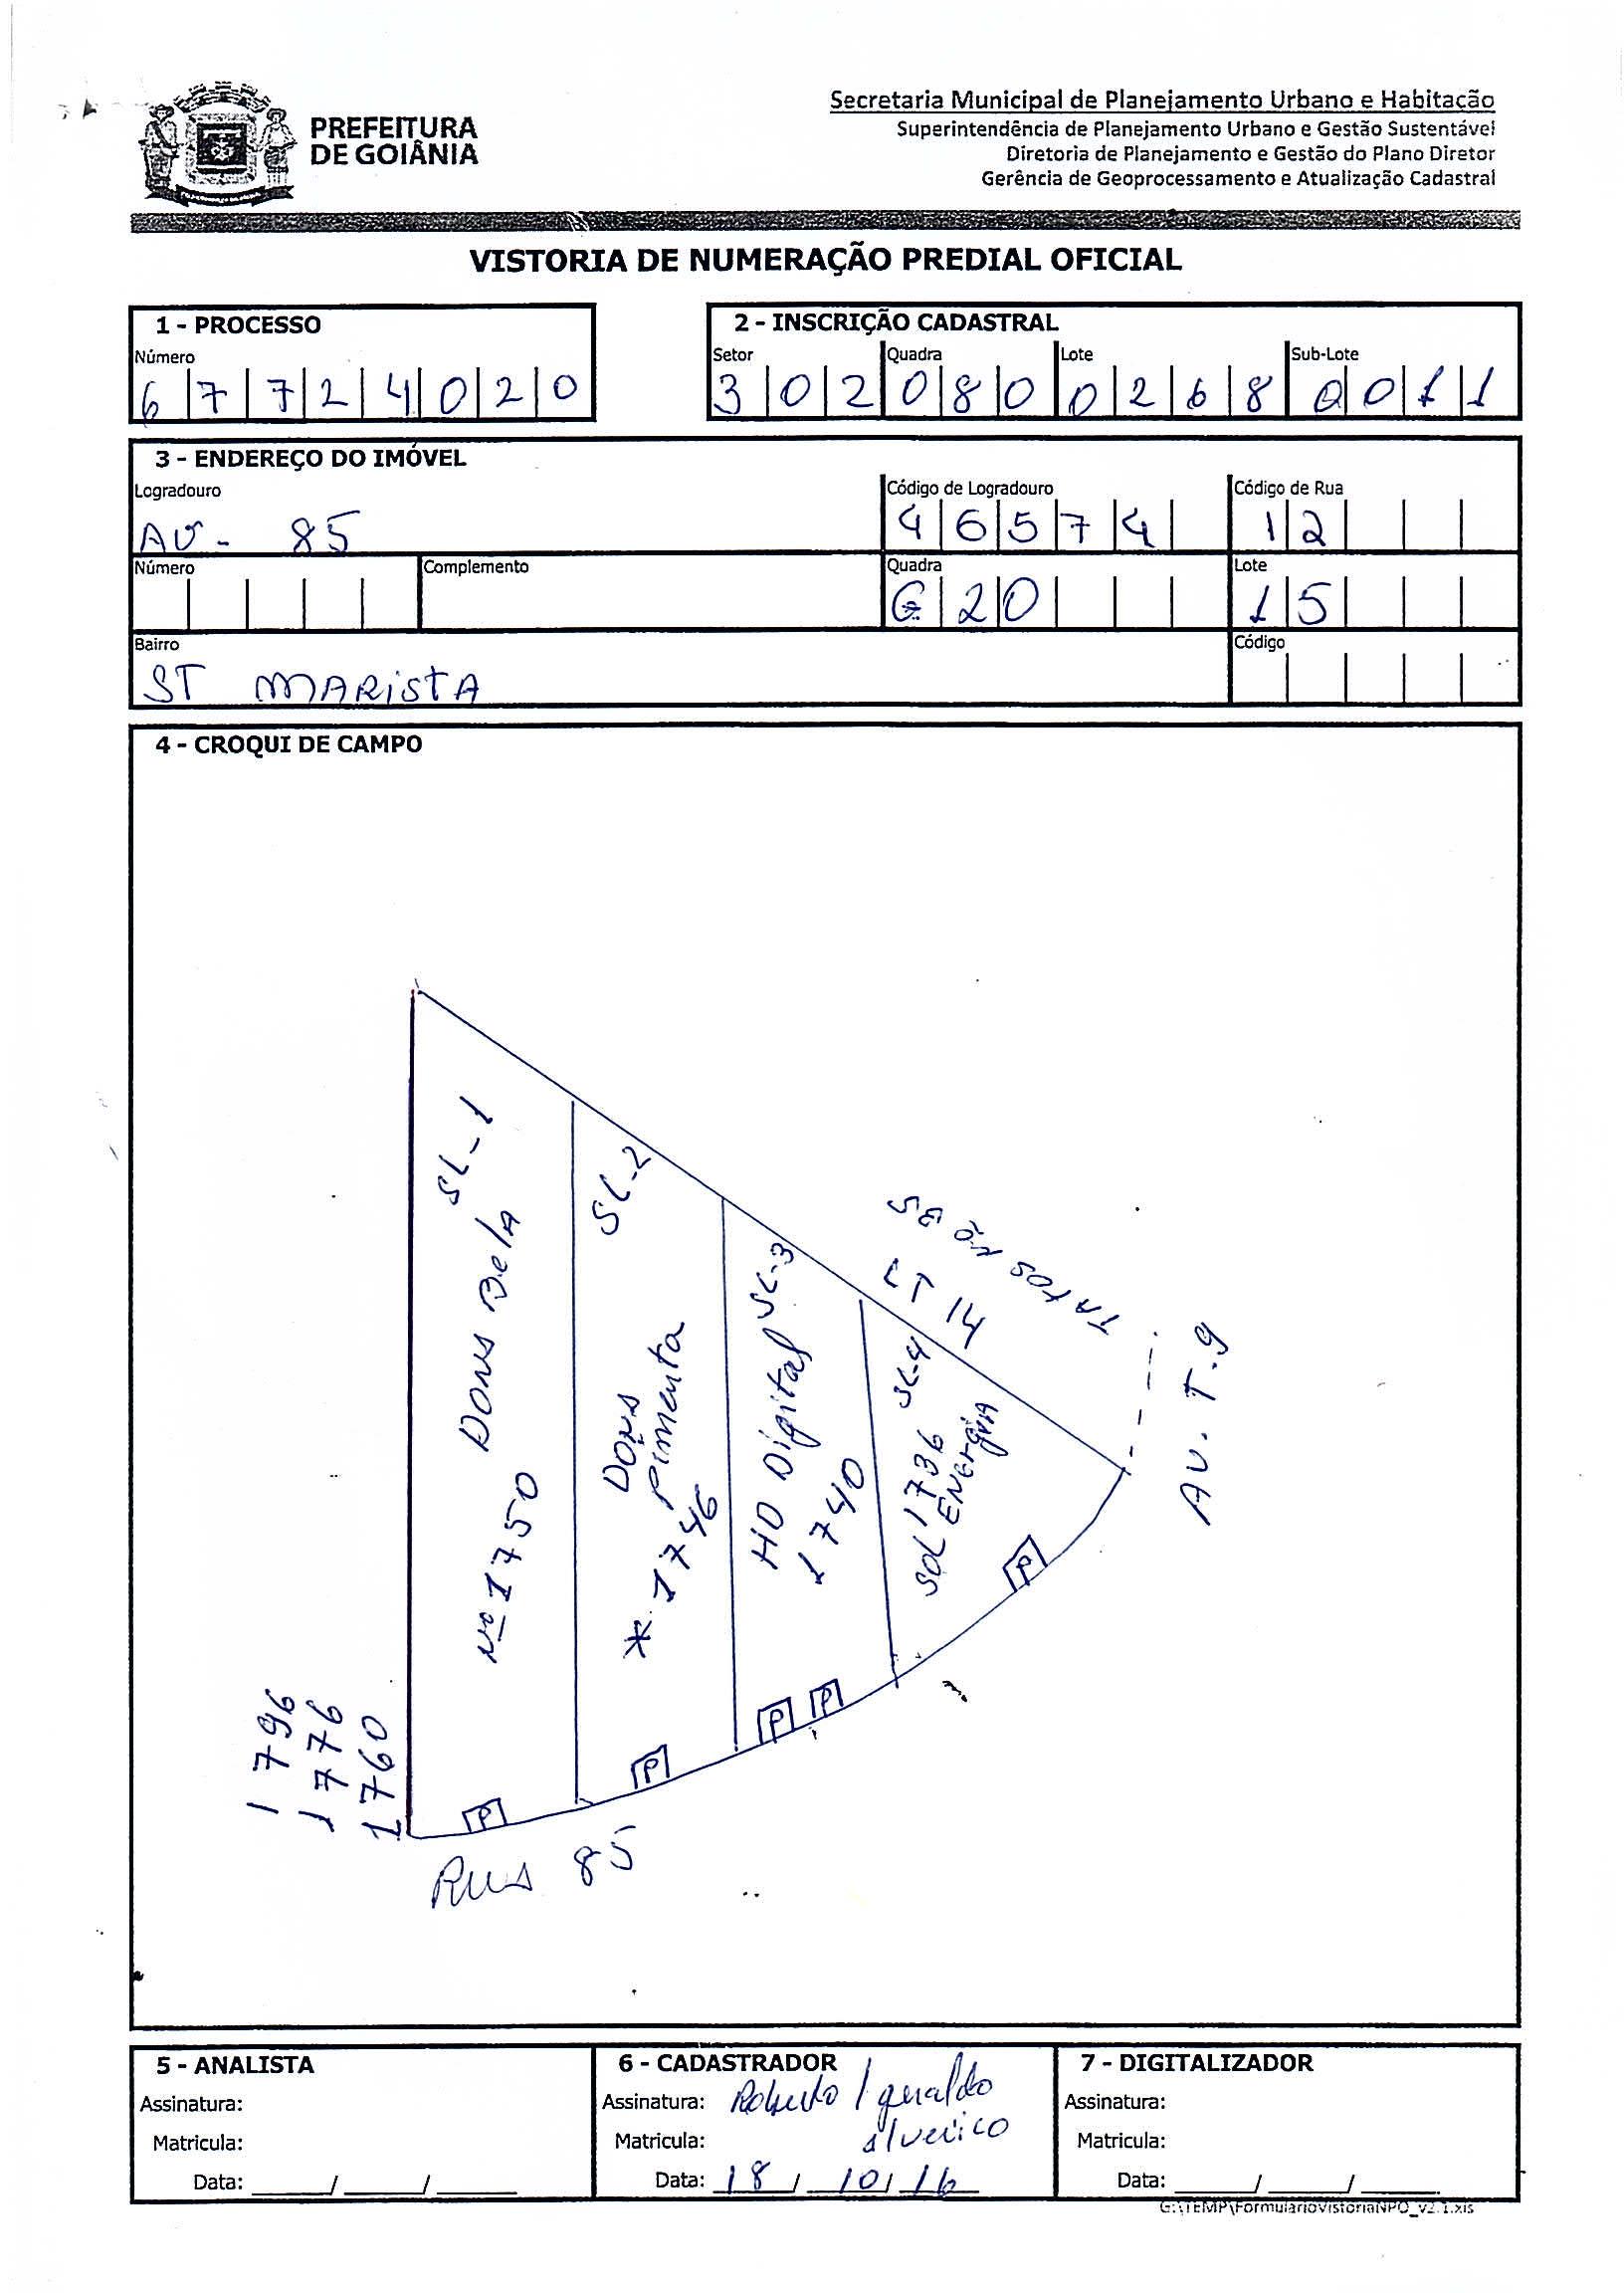 PREFEITURA
DE GOIÂNIA
Secretaria Municipal de Planejamento Urbano e Habitação
Superintendência de Planejamento Urbano e Gestão Sustentável
Diretoria de Planejamento e Gestão do Plano Diretor
Gerência de Geoprocessamento e Atualização Cadastral
VISTORIA DE NUMERAÇÃO PREDIAL OFICIAL
1 - PROCESSO
Número
6 7 7 2 4 0 2 0
2 - INSCRIÇÃO CADASTRAL
Setor Quadra Lote Sub-Lote
3 0 2 0 8 0 0 2 6 8 0 0 1 1
3 - ENDEREÇO DO IMÓVEL
Logradouro Código de Logradouro Código de Rua
AV - 85 4 6 5 7 4 1 2
Número Complemento Quadra Lote
G 2 0 1 5
Bairro Código
ST MARISTA
4 - CROQUI DE CAMPO
SL-1
DONA Bela
Nº 1750
SL-2
DONA
Pimenta
* 1746
SL-3
HD Digital
1740
SL-4
1736
SOL ENERGIA
LT 14
AV. T.9
P
P
P P
P
1796
1776
1760
Rua 85
5 - ANALISTA
Assinatura:
Matricula:
Data: ____/____/____
6 - CADASTRADOR
Assinatura: Roberto / geraldo
Matricula: alverico
Data: 18 / 10 / 16
7 - DIGITALIZADOR
Assinatura:
Matricula:
Data: ____/____/____
G:\TEMP\FormularioVistoriaNPO_v2.1.xls